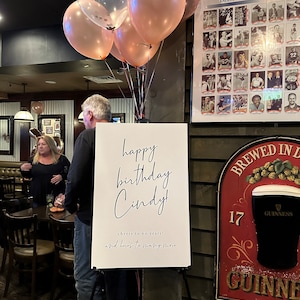 happy
birthday
Cindy!
BREWED IN D
17
GUINNESS
GUINN